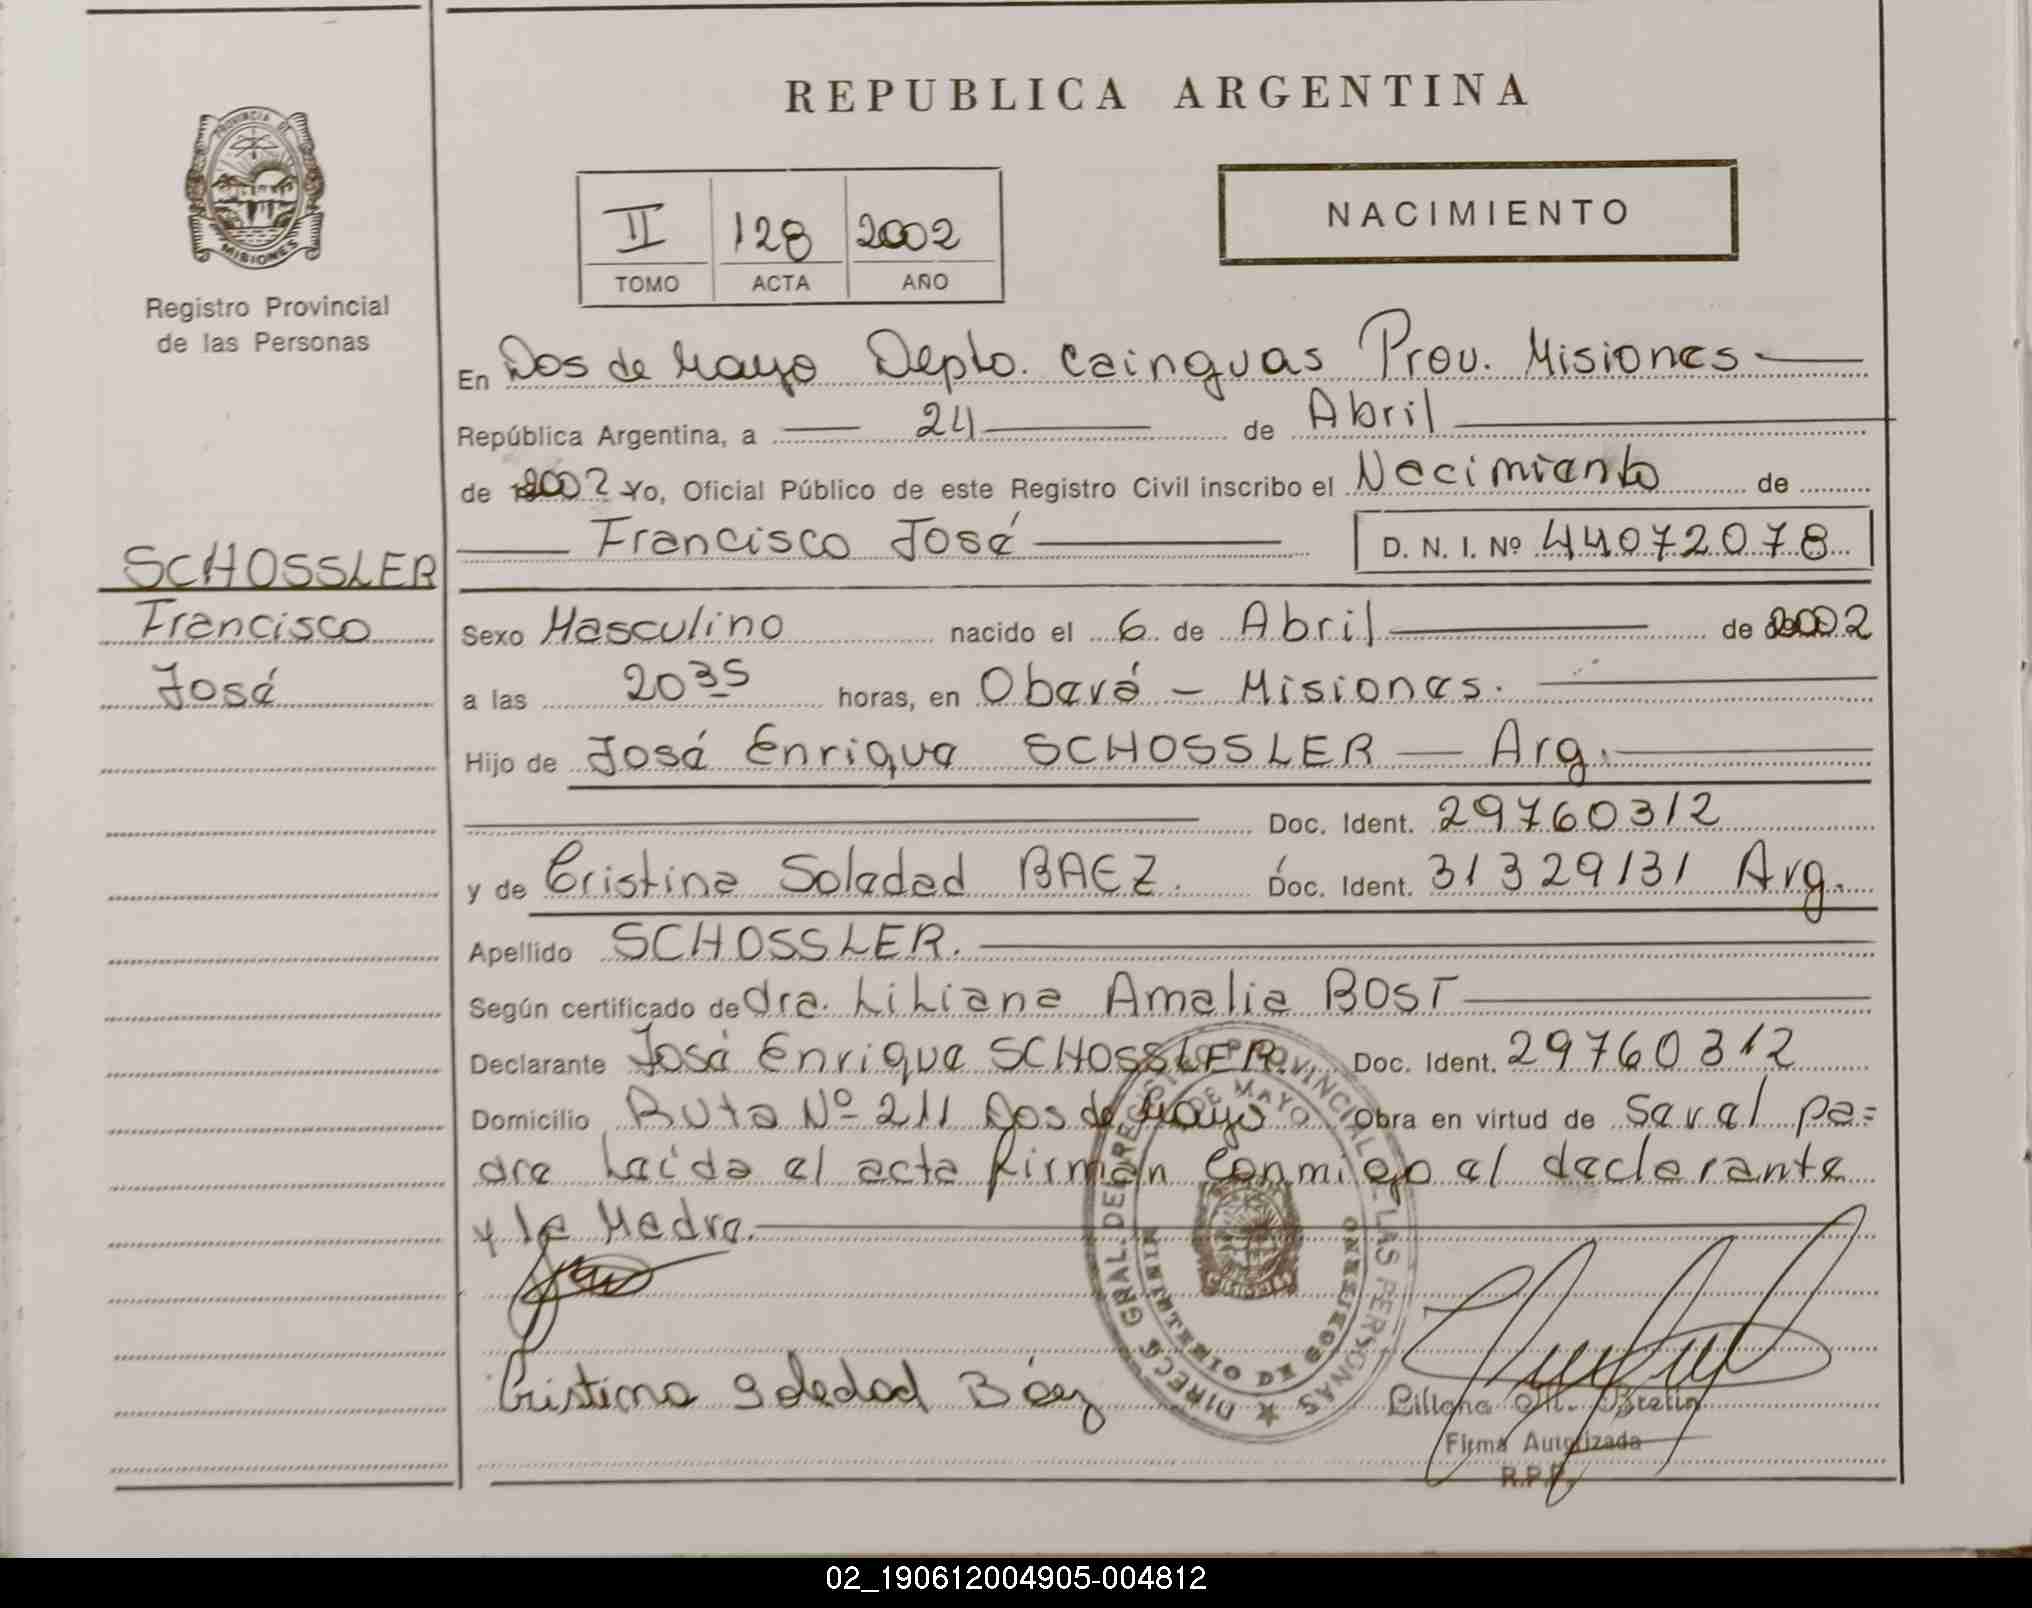 REPUBLICA ARGENTINA
PROVINCIA DE
MISIONES
Registro Provincial
de las Personas
II 128 2002
TOMO ACTA AÑO
NACIMIENTO
En Dos de Mayo Depto. Cainguas Prov. Misiones
República Argentina, a 24 de Abril
de 2002 Yo, Oficial Público de este Registro Civil inscribo el Nacimiento de
Francisco José D. N. I. Nº 44072078
SCHOSSLER
Francisco
José
Sexo Masculino nacido el 6 de Abril de 2002
a las 20 35 horas, en Oberá - Misiones.
Hijo de José Enrique SCHOSSLER - Arg.
Doc. Ident. 29760312
y de Cristina Soledad BAEZ. Doc. Ident. 31329131 Arg.
Apellido SCHOSSLER.
Según certificado de dra. Liliana Amalia BOST
Declarante José Enrique SCHOSSLER. Doc. Ident. 29760312
Domicilio Ruta Nº 211 Dos de Mayo Obra en virtud de Ser el pa=
dre Leída el acta firman conmigo el declarante
y la Madre.
Cristina Soledad Báez
DIRECC GRAL. DEL REGISTRO PROVINCIAL DE LAS PERSONAS
DE MAYO
Liliana
Firma Autorizada
R.P.P.
02_190612004905-004812